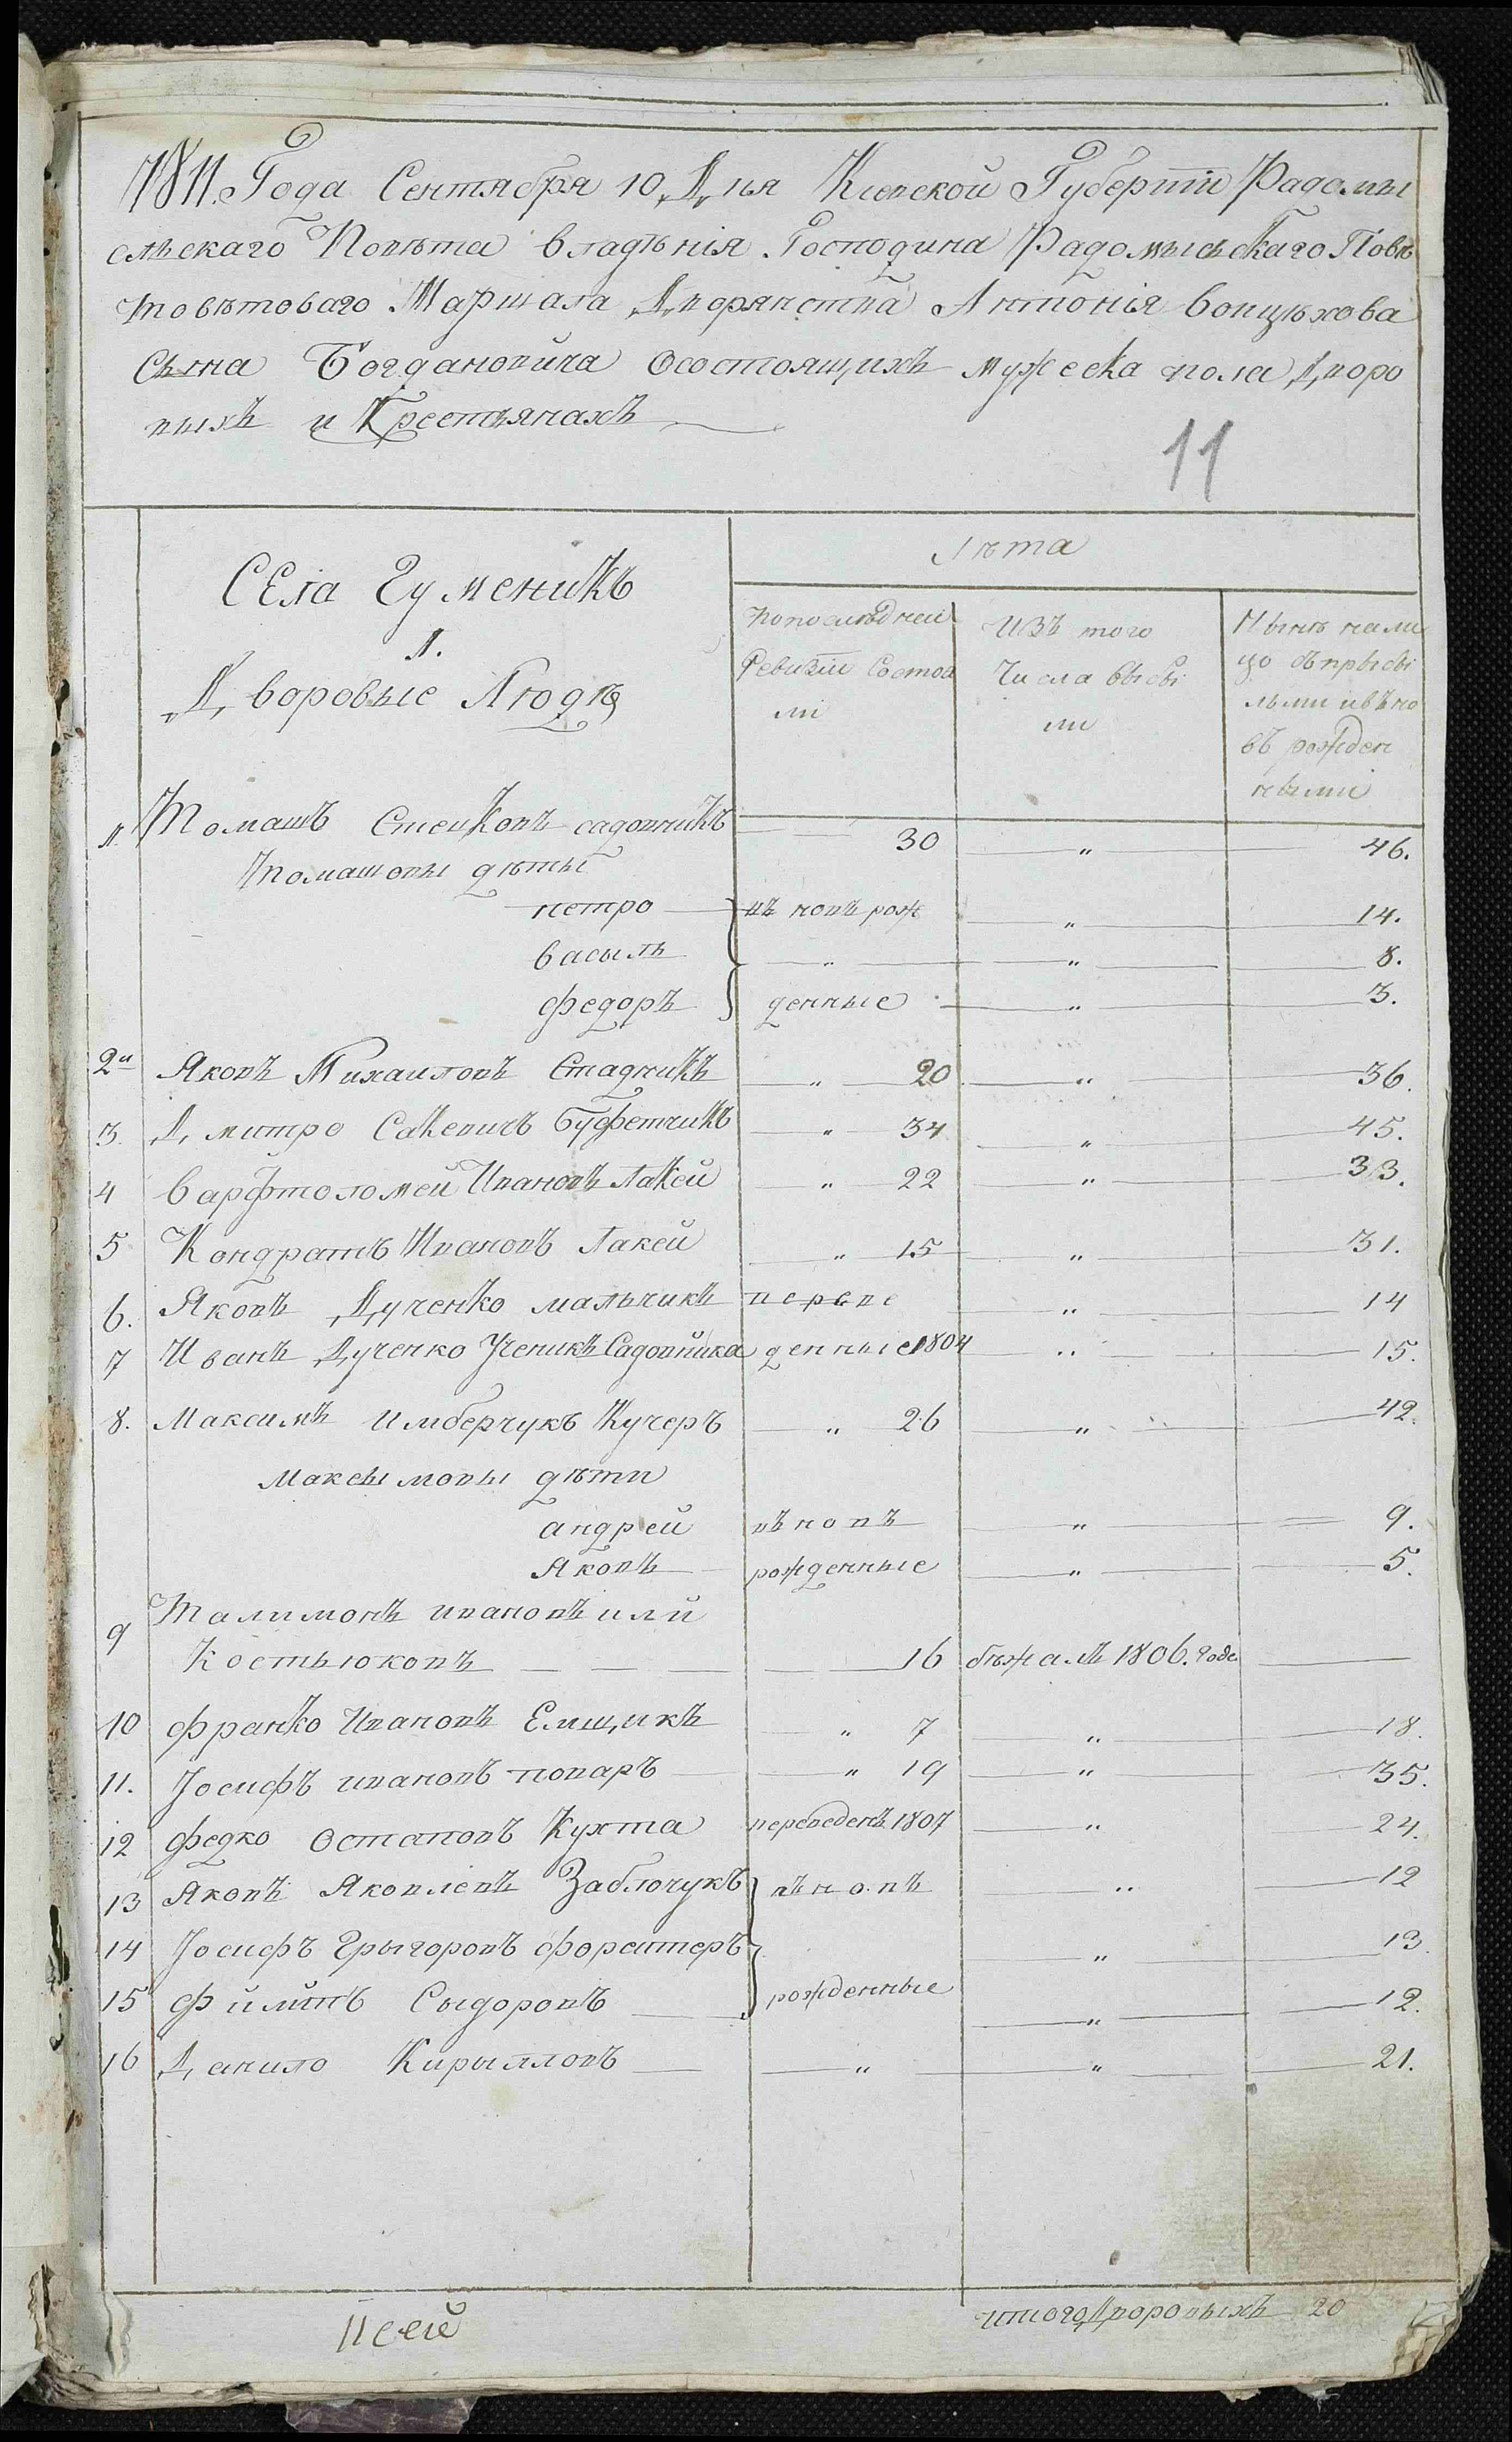 1811. Года Сентября 10 Дня Киевской Губернiи Радомы
слъскаго Повѣта владѣнія Господина Радомысльскаго Повѣ
товѣтоваго Маршала Дворянства Антонія войцѣхова
сына Богдановича Осостоящихъ мужеска пола Дворо
выхъ и Крестьянахъ
11
СЕла Гуменикъ
1.
Дворовые Людѣ
Лѣта
попослѣдней Ревизiи Состоя ли
Изъ того Числа выбы ли
Нынѣ нали цо съпрыбы лыми ивъно въ рожден ными
1. Томашъ Стецковъ садовникъ 30 „ 46.
Томашовы дѣты
петро въ новъ рож „ 14.
василь „ „ 8.
федоръ денные „ 3.
2й Яковъ Михаиловъ Стадникъ „ 20 „ 36.
3. Дмитро Сакевичъ Буфетчикъ „ 34 „ 45.
4 варфтоломей Ивановъ Лакей „ 22 „ 33.
5 Кондратъ Ивановъ Лакей „ 15 „ 31.
6. Яковъ Дученко мальчикъ переве „ 14
7 Иванъ Дученко Ученикъ Садовника денные 1804 „ 15.
8. Максимъ Имберчукъ Кучеръ „ 26 „ 42.
максымовы дѣти
андрей въновъ „ 9.
Яковъ рожденные „ 5.
9 Талимонъ ивановъ или
Костьюковъ 16 бѣжалъ 1806. Года
10 франко Ивановъ Емщикъ „ 7 „ 18.
11. Іосифъ ивановъ поваръ „ 19 „ 35.
12 федко Остаповъ Кухта переведенъ 1807 „ 24.
13 Яковъ Яковлевъ Заблочукъ въновъ „ 12
14 Іосифъ Грыгоровъ форейтеръ „ 13.
15 филипъ Сыдоровъ рожденные „ 12.
16 Данило Кирылловъ „ „ 21.
итого Дворовыхъ 20